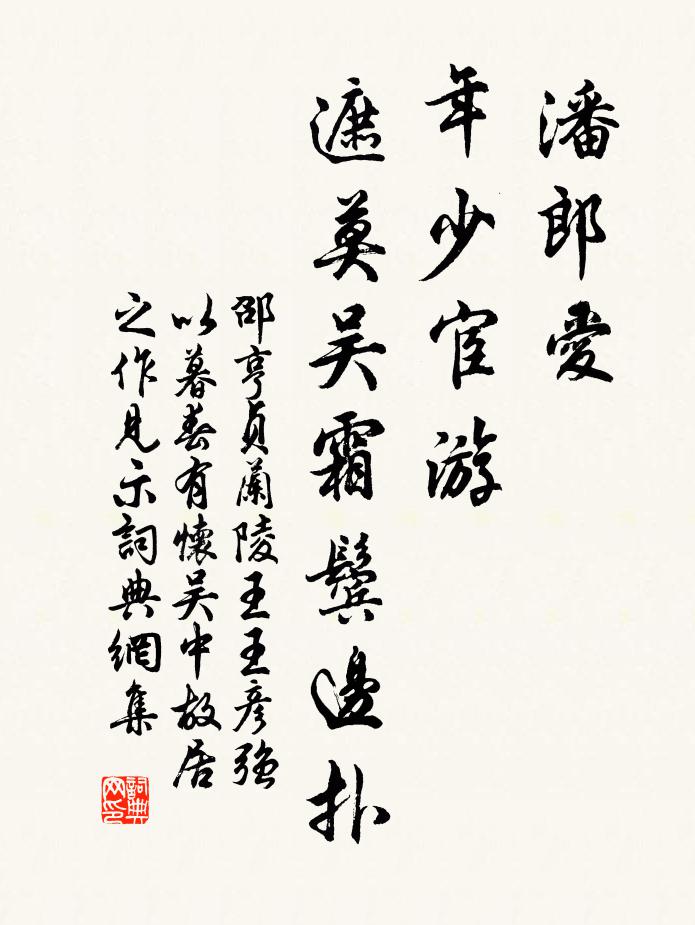 潘郎愛
年少宦游
遮莫吴霜鬓邊扑
邵亨貞蘭陵王王彦強
以暮春有懷吴中故居
之作見示詞典網集
詞典
网印